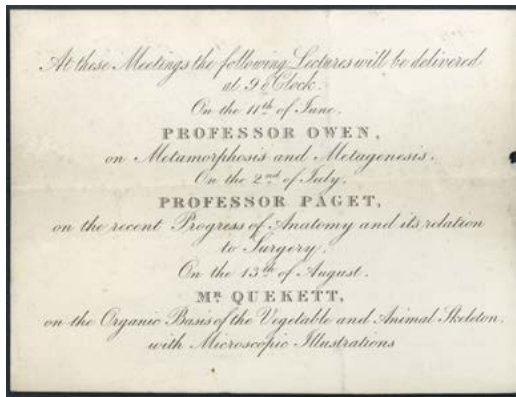 At these Meetings the following Lectures will be delivered
at 9 o'Clock.
On the 11th of June.
PROFESSOR OWEN,
on Metamorphosis and Metagenesis.
On the 2nd of July,
PROFESSOR PAGET,
on the recent Progress of Anatomy and its relation
to Surgery.
On the 13th of August.
Mr. QUEKETT,
on the Organic Basis of the Vegetable and Animal Skeleton.
with Microscopic Illustrations